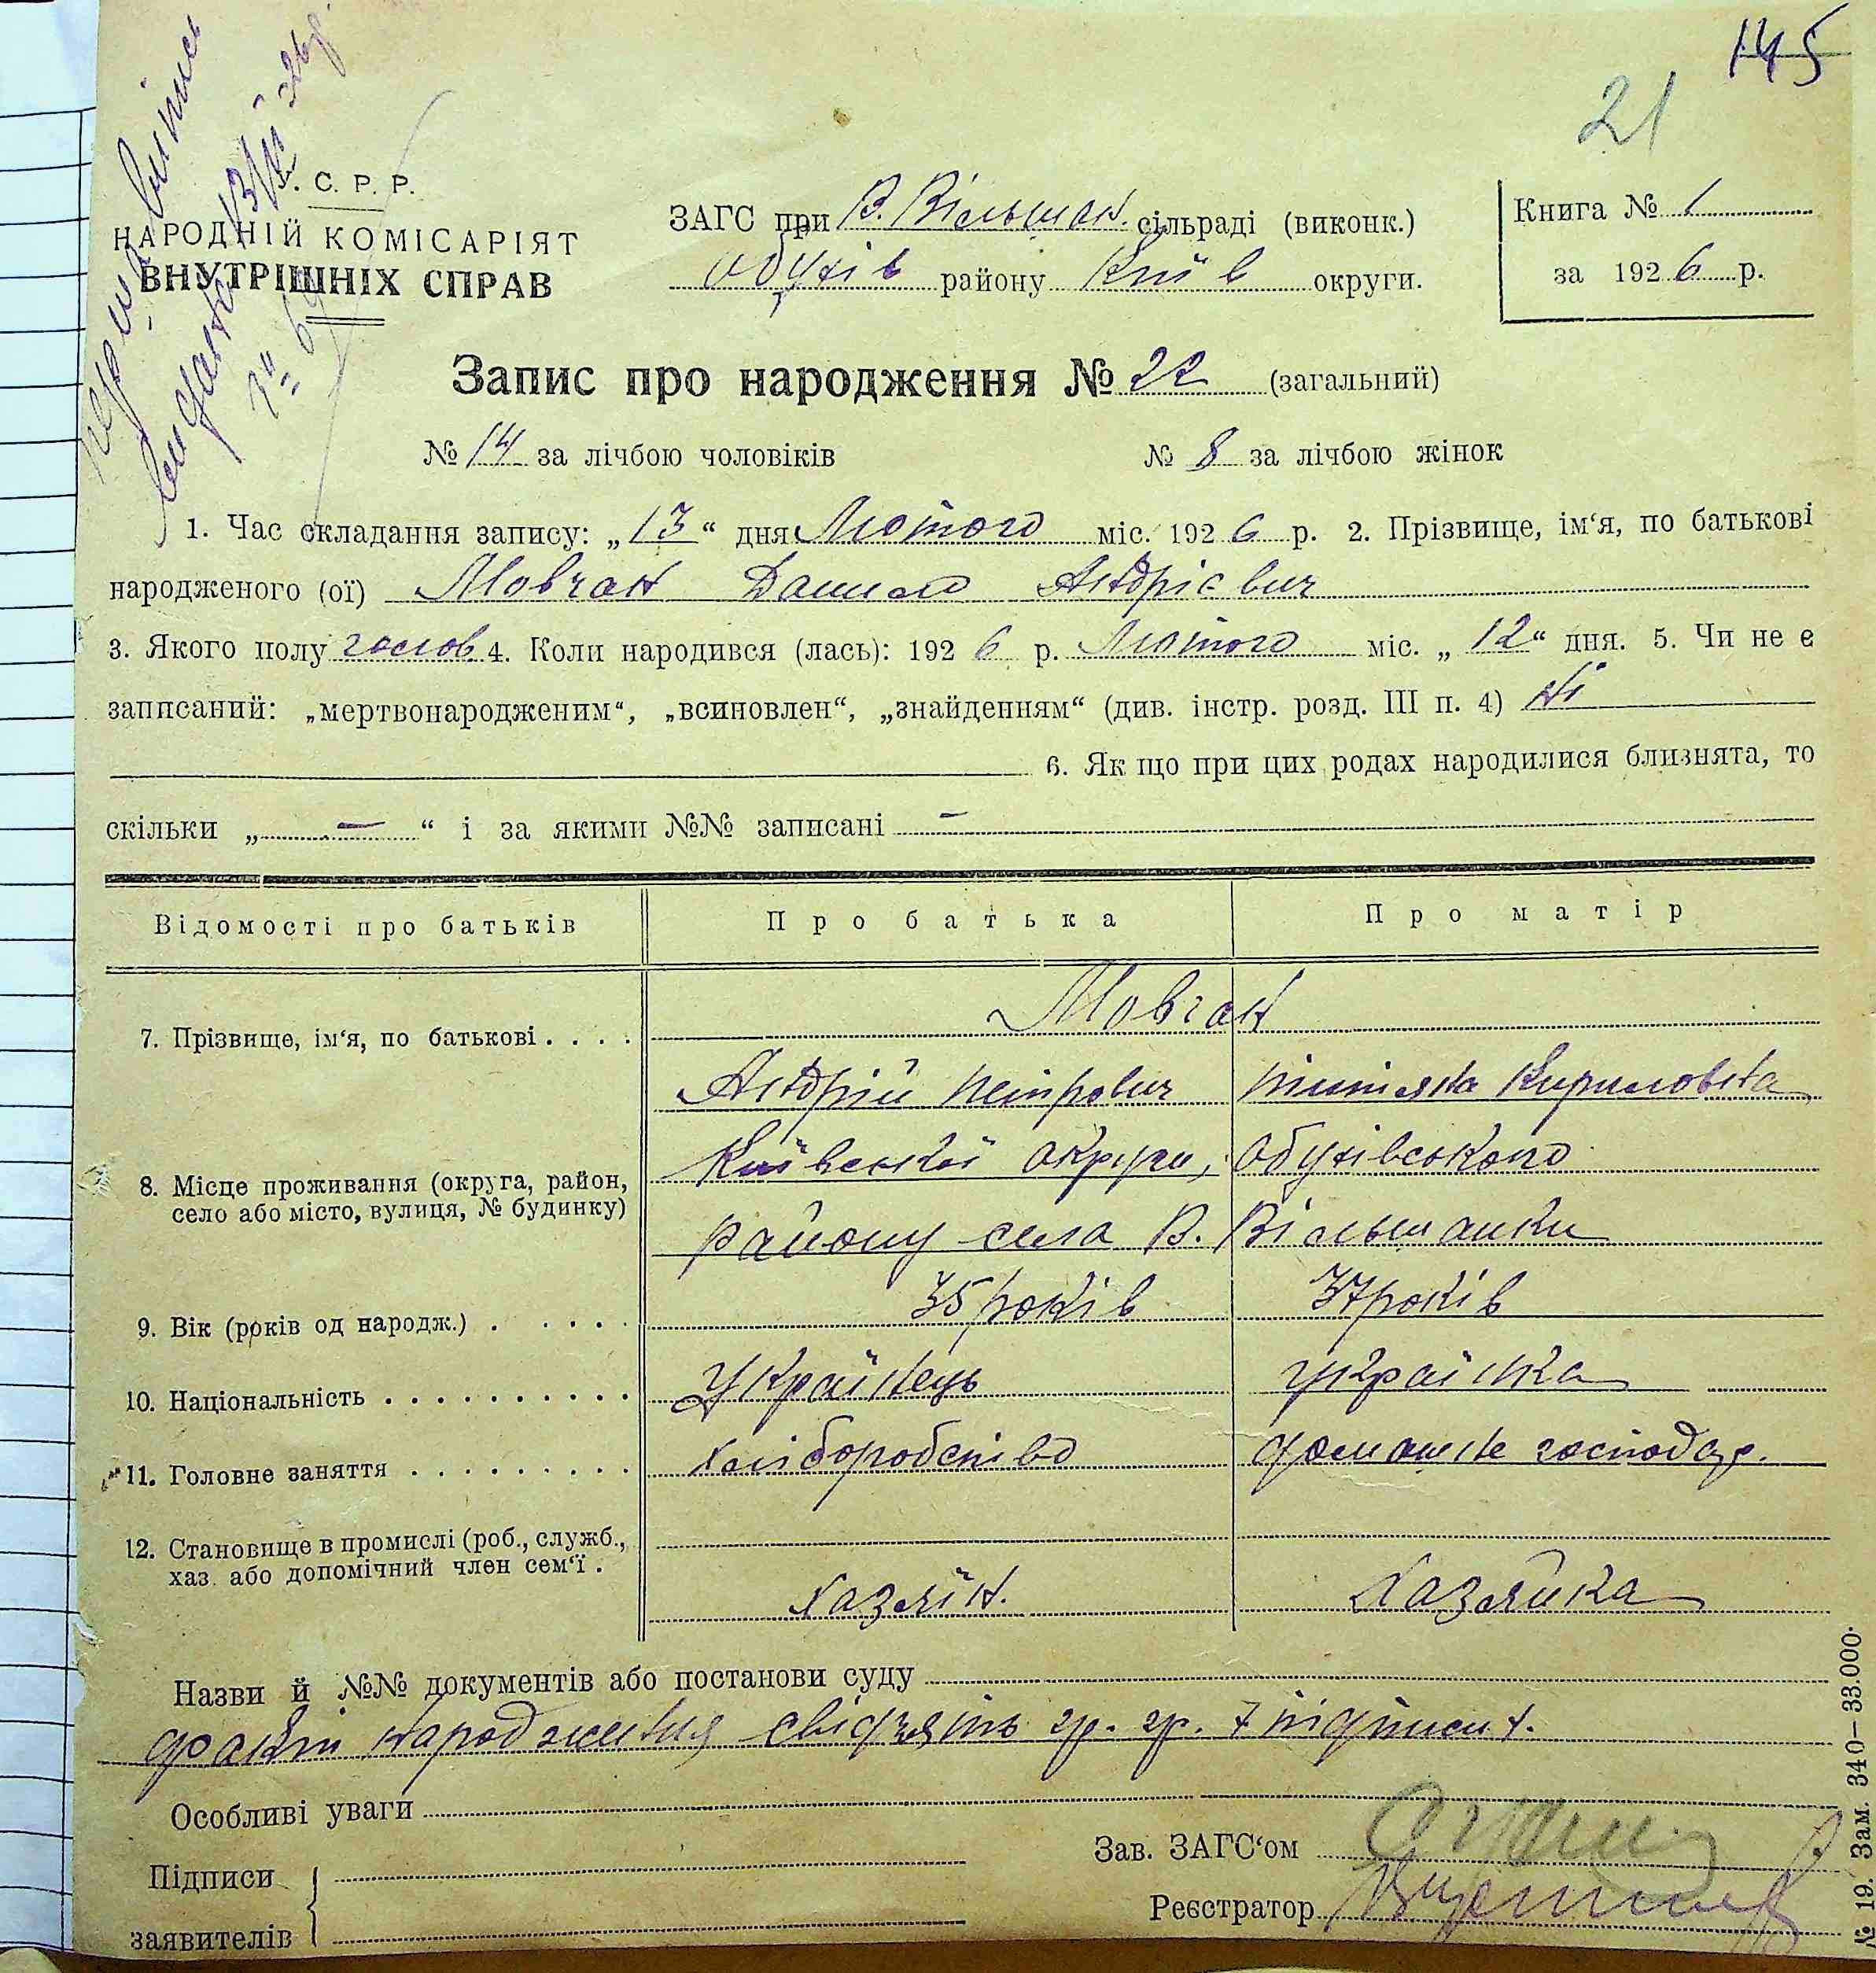 145
21
С. Р. Р.
НАРОДНІЙ КОМІСАРІЯТ
ВНУТРІШНІХ СПРАВ
ЗАГС при В. Вільшан. сільраді (виконк.)
Обухів району Київ округи.
Книга № 1
за 1926 р.
Запис про народження № 22 (загальний)
№ 14 за лічбою чоловіків № 8 за лічбою жінок
1. Час складання запису: „13“ дня Лютого міс. 1926 р. 2. Прізвище, ім‘я, по батькові
народженого (ої) Мовчан Данило Андрієвич
3. Якого полу чолов. 4. Коли народився (лась): 1926 р. Лютого міс. „12“ дня. 5. Чи не є
записаний: „мертвонародженим“, „всиновлен“, „знайденням“ (див. інстр. розд. III п. 4) Ні
6. Як що при цих родах народилися близнята, то
скільки „ — “ і за якими №№ записані —
Відомості про батьків Про батька Про матір
7. Прізвище, ім‘я, по батькові . . . . Мовчан
Андрій Петрович Титяна Кириловна
8. Місце проживання (округа, район,
село або місто, вулиця, № будинку)
Київської округи, Обухівського
району села В. Вільшанки
9. Вік (років од народж.) . . . . . 35 років 37 років
10. Національність . . . . . . . . . . Українець українка
11. Головне заняття . . . . . . . . . хліборобство домашнє господар.
12. Становище в промислі (роб., служб.,
хаз. або допомічний член сем‘ї .
Хазяїн. Хазяйка
Назви й №№ документів або постанови суду
факт народження свідчять гр. гр.
Особливі уваги
Підписи
заявителів
Зав. ЗАГС‘ом
Реєстратор
№ 19. Зам. 340—33.000.